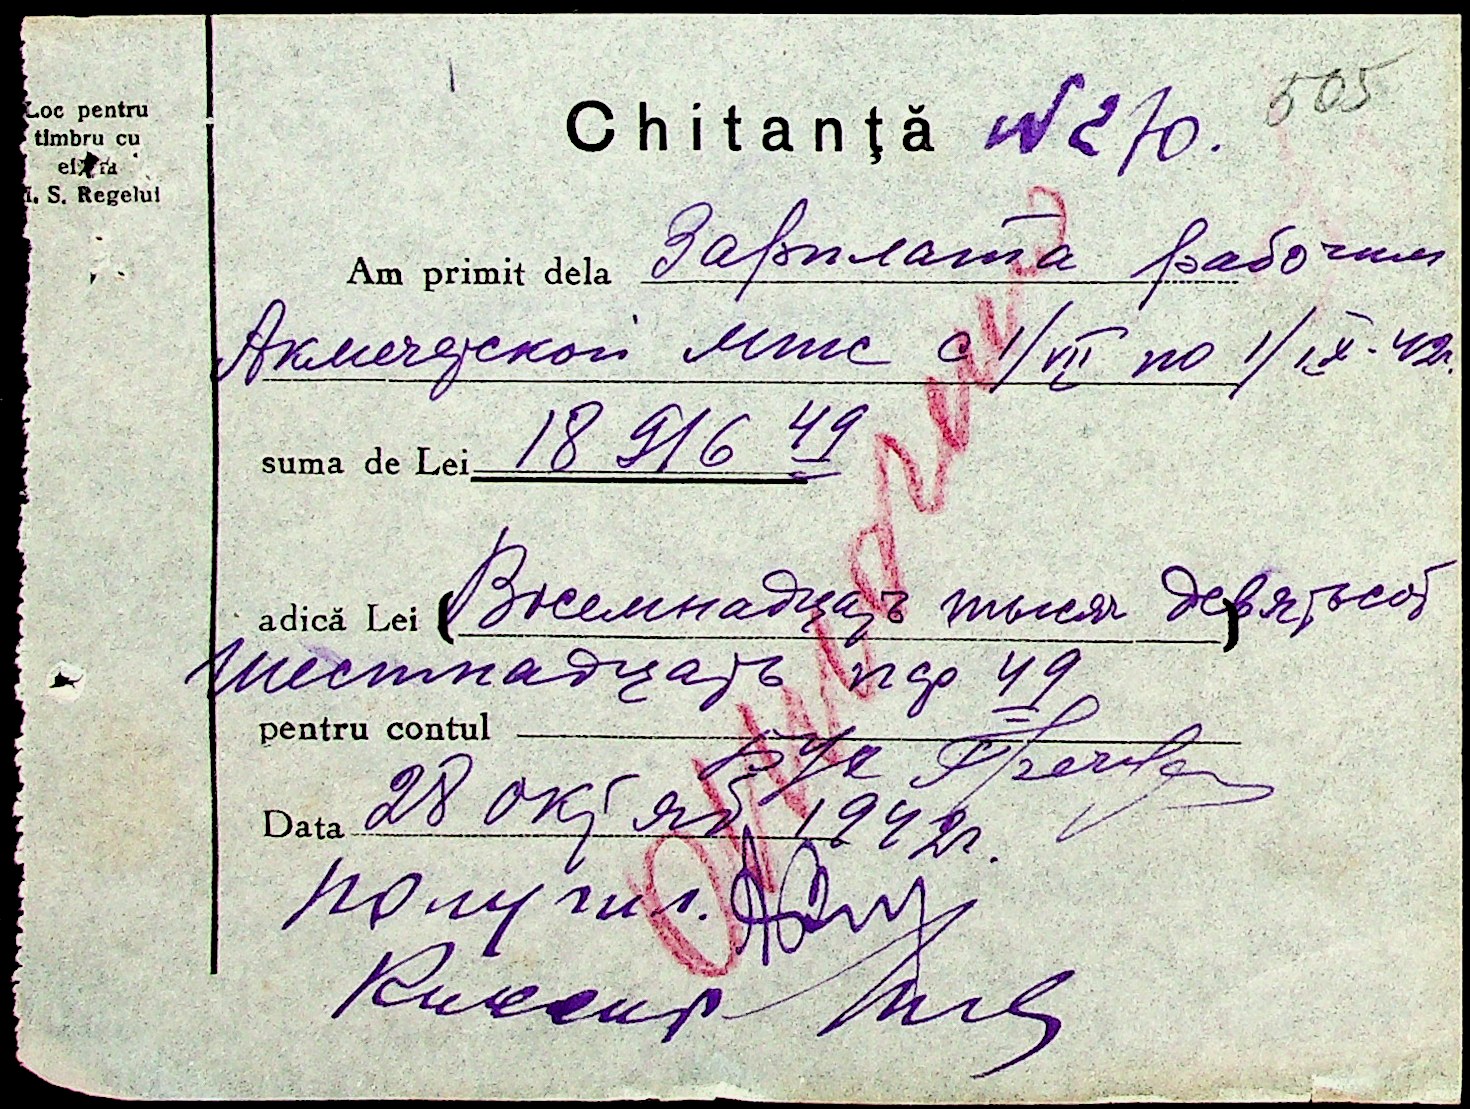 505
Loc pentru
timbru cu
efigia
M. S. Regelui
Chitanță № 270.
Am primit dela Зарплата рабочим
Акмечетской мтс с 1/VIII по 1/IX-42г.
suma de Lei 18 916 49
adică Lei (Восемнадцать тысяч девятьсот)
шестнадцать пф 49
pentru contul
Бух
Data 28 октяб 1942г.
получил.
Кассир
Оплачено